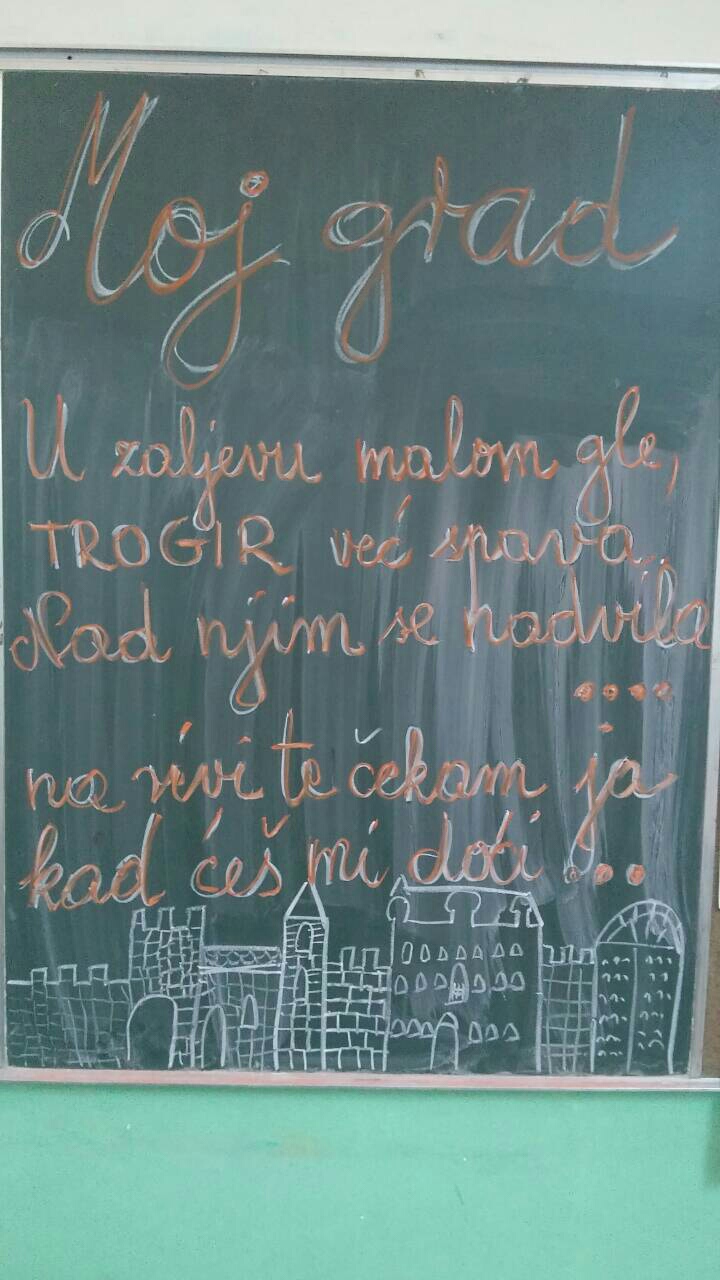 Moj grad
U zaljevu malom gle,
TROGIR već spava.
Nad njim se nadvila
....
na rivi te čekam ja
kad ćeš mi doći ...